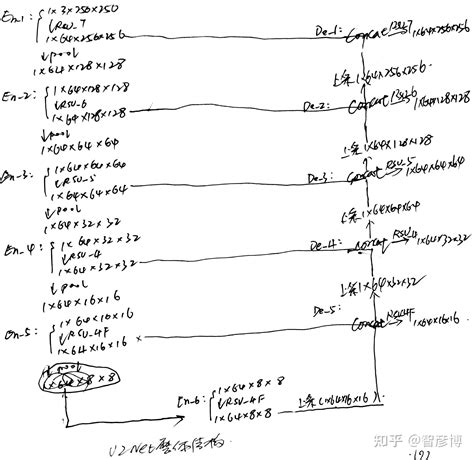 En-1: 1×3×256×256
↓RSU-7
1×64×256×256
De-1: Concat RSU-7 1×64×256×256
↓pool
1×64×128×128
上采 1×64×256×256
En-2: 1×64×128×128
↓RSU-6
1×64×128×128
De-2: Concat RSU-6 1×64×128×128
↓pool
1×64×64×64
上采 1×64×128×128
En-3: 1×64×64×64
↓RSU-5
1×64×64×64
De-3: Concat RSU-5 1×64×64×64
↓pool
1×64×32×32
上采 1×64×64×64
En-4: 1×64×32×32
↓RSU-4
1×64×32×32
De-4: Concat RSU-4 1×64×32×32
↓pool
1×64×16×16
上采 1×64×32×32
En-5: 1×64×16×16
↓RSU-4F
1×64×16×16
De-5: Concat RSU-4F 1×64×16×16
↓pool
1×64×8×8
En-6: 1×64×8×8
↓RSU-4F
1×64×8×8
上采 1×64×16×16
U2Net整体结构
知乎 @智彦博